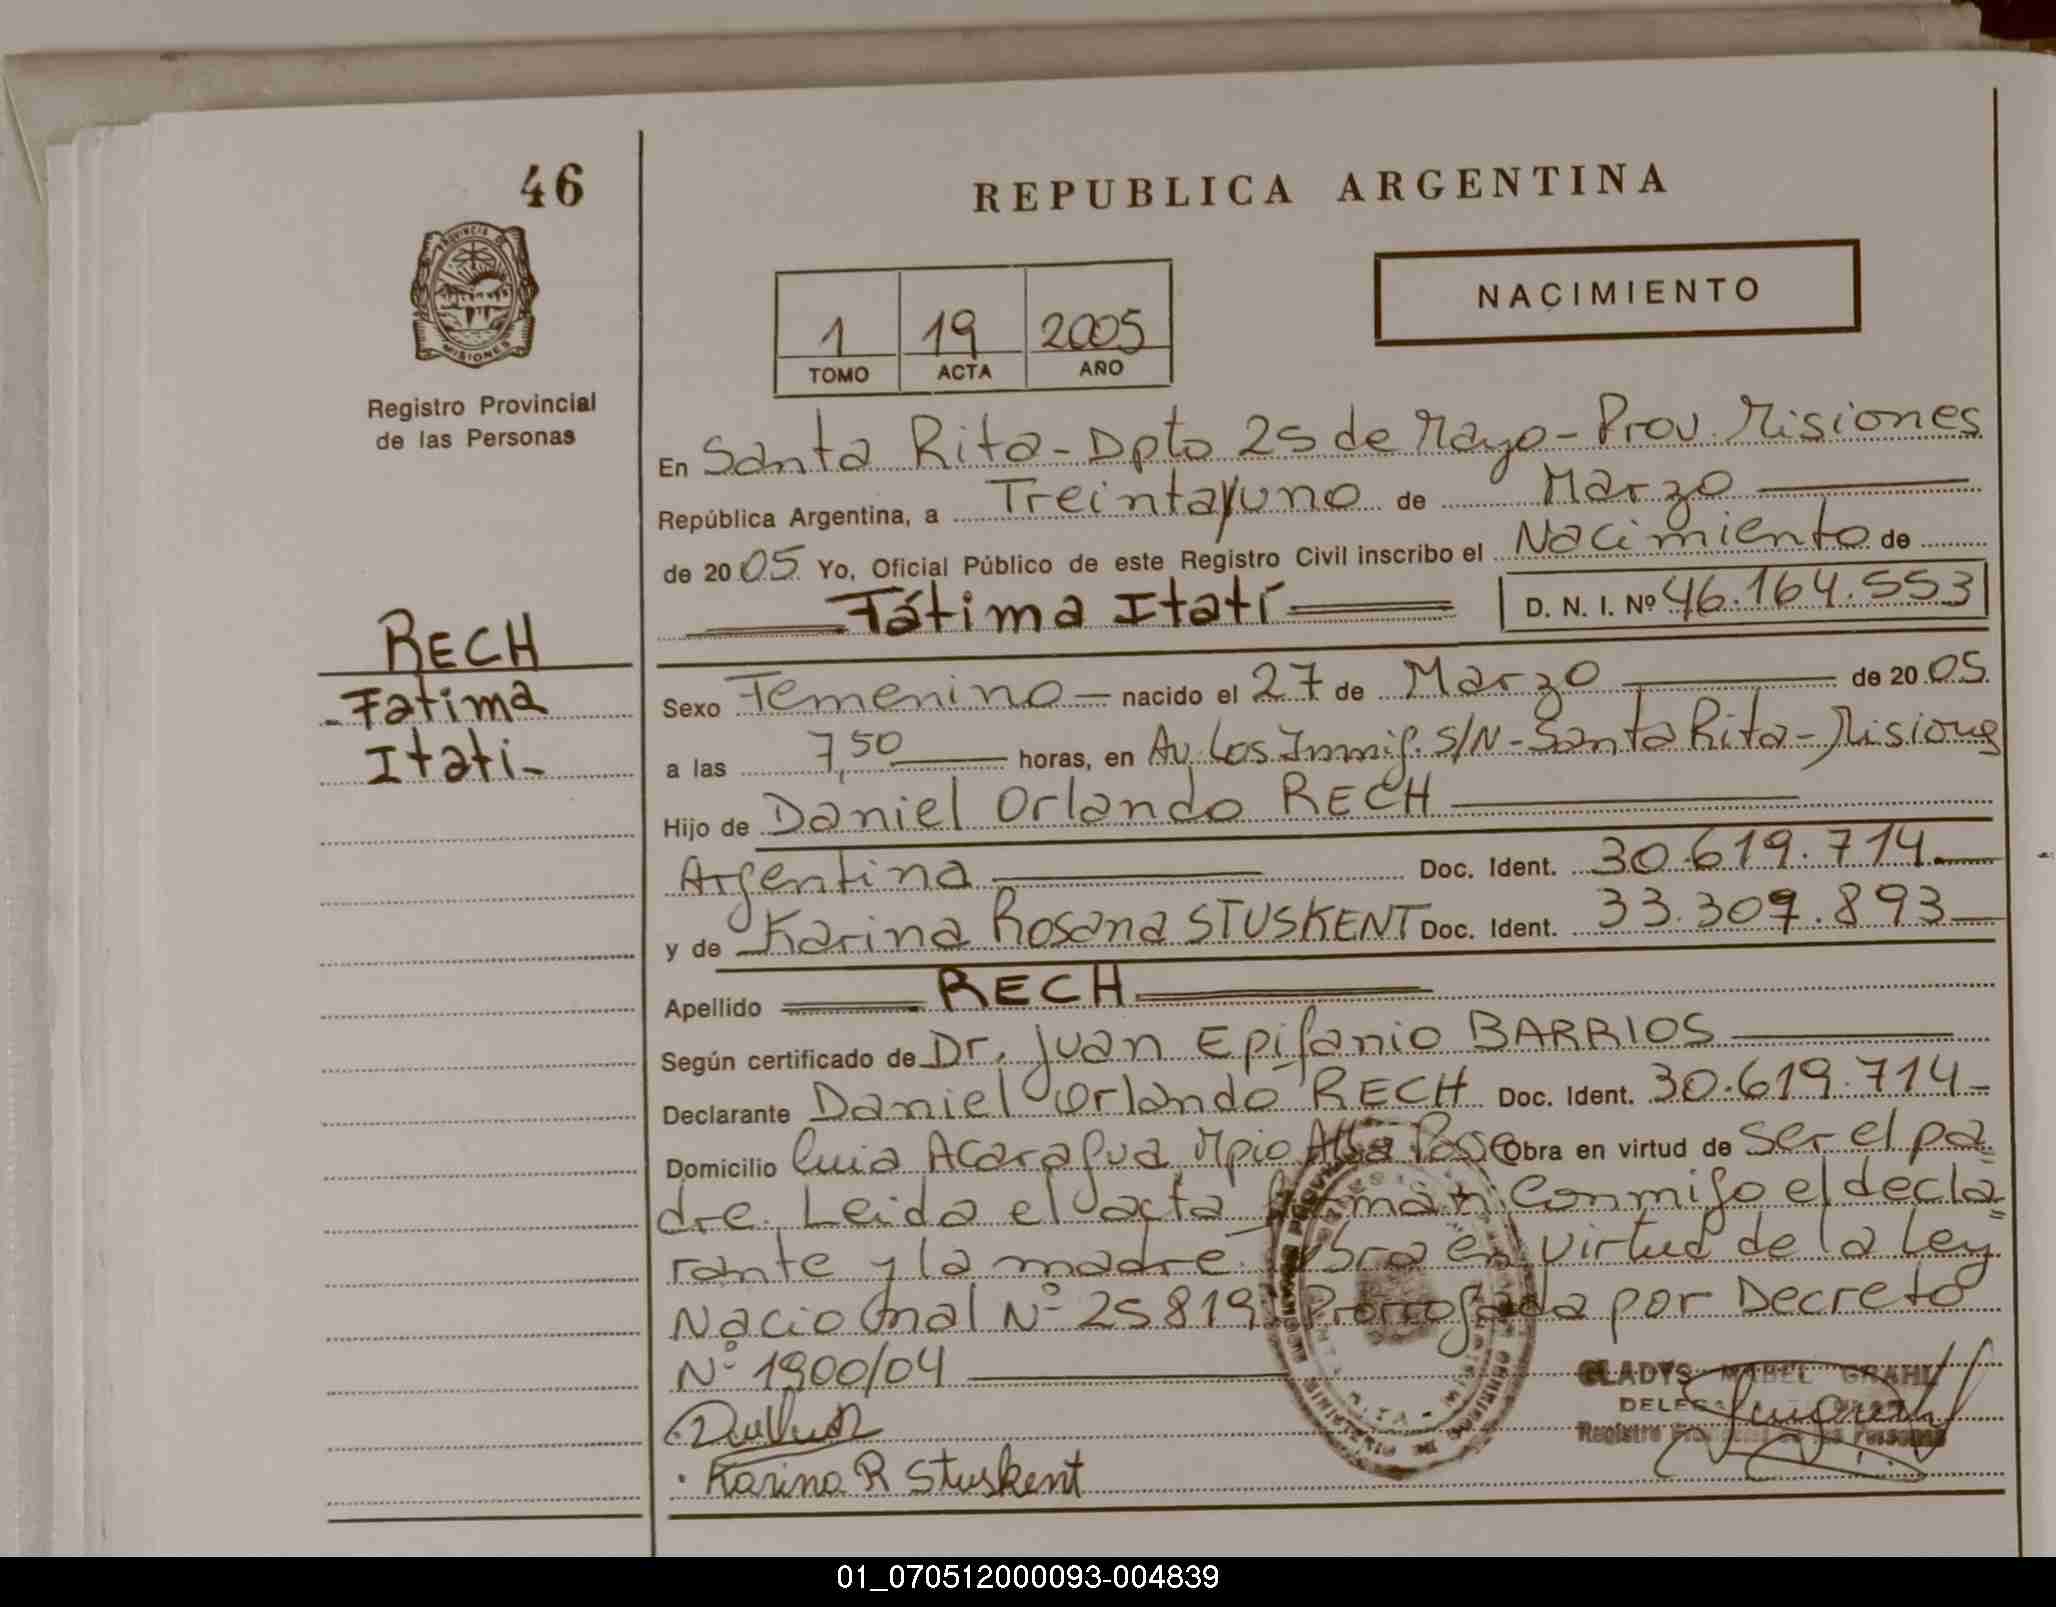 46
REPUBLICA ARGENTINA
PROVINCIA DE
MISIONES
Registro Provincial
de las Personas
1 19 2005
TOMO ACTA AÑO
NACIMIENTO
En Santa Rita - Dpto 25 de Mayo - Prov. Misiones
República Argentina, a Treinta y uno de Marzo
de 2005 Yo, Oficial Público de este Registro Civil inscribo el Nacimiento de
Fátima Itatí D. N. I. Nº 46.164.553
RECH
Fatima
Itati-
Sexo Femenino - nacido el 27 de Marzo de 2005
a las 7,50 horas, en Av. Los Inmig. S/N - Santa Rita - Misiones
Hijo de Daniel Orlando RECH
Argentina Doc. Ident. 30.619.714
y de Karina Rosana STUSKENT Doc. Ident. 33.307.893
Apellido RECH
Según certificado de Dr. Juan Epifanio BARRIOS
Declarante Daniel Orlando RECH Doc. Ident. 30.619.714
Domicilio Acaragua Mpio Alba Posse Obra en virtud de ser el pa
dre. Leida el acta firman conmigo el decla
rante y la madre. Obra en virtud de la Ley
Nacional Nº 25819 Prorrogada por Decreto
Nº 1900/04
GLADYS MABEL GRAHL
Registro Provincial de las Personas
Karina R Stuskent
01_070512000093-004839